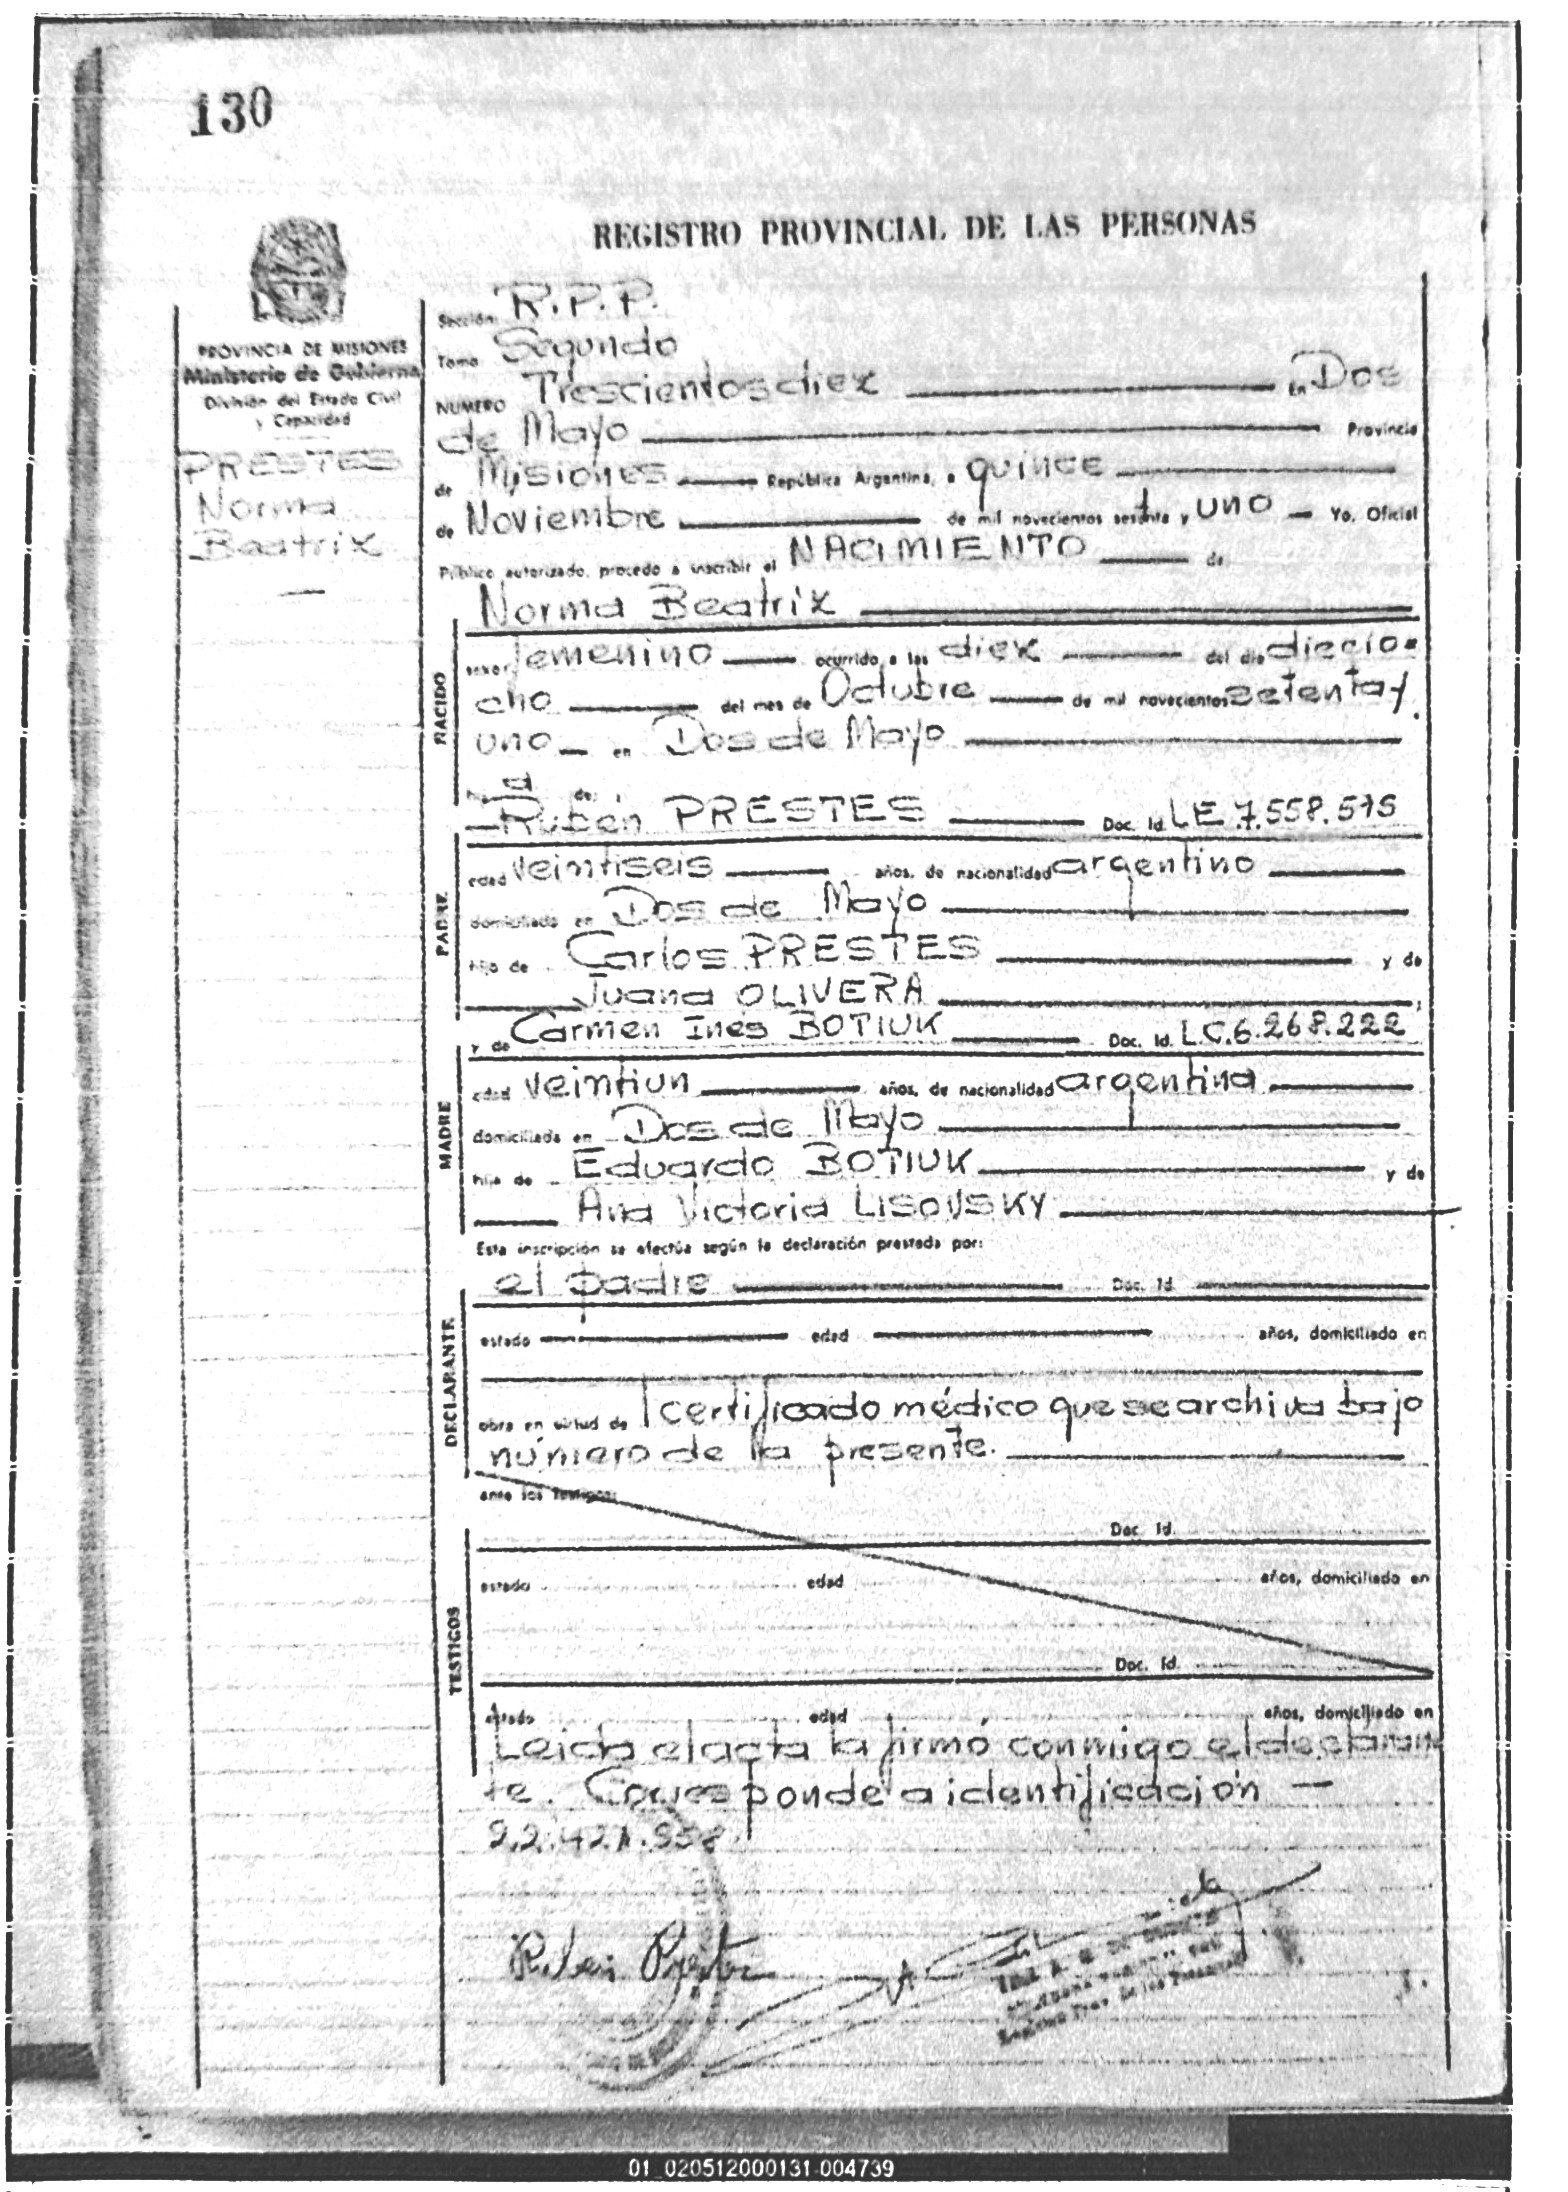 130
REGISTRO PROVINCIAL DE LAS PERSONAS
PROVINCIA DE MISIONES
Ministerio de Gobierno
División del Estado Civil
y Capacidad
PRESTES
Norma
Beatriz
Sección R.P.P.
Tomo Segundo
NUMERO Trescientos diez en Dos
de Mayo Provincia
de Misiones República Argentina, a quince
de Noviembre de mil novecientos sesenta y uno Yo, Oficial
Público autorizado, procedo a inscribir el NACIMIENTO de
Norma Beatriz
NACIDO
sexo femenino ocurrido a las diez del dia diecio=
cho del mes de Octubre de mil novecientos setenta y
uno en Dos de Mayo
hij a de:
Rubén PRESTES Doc. Id. LE 7.558.575
PADRE
edad veintiseis años, de nacionalidad argentino
domiciliado en Dos de Mayo
hijo de Carlos PRESTES y de
Juana OLIVERA
y de Carmen Inés BOTIUK Doc. Id. L.C. 6.268.222
MADRE
edad veintiun años, de nacionalidad argentina
domiciliada en Dos de Mayo
hija de Eduardo BOTIUK y de
Ana Victoria LISOVSKY
Esta inscripción se efectúa según la declaración prestada por:
el padre Doc. Id.
DECLARANTE
estado edad años, domiciliado en
obra en virtud de certificado médico que se archiva bajo
número de la presente.
ante los testigos:
Doc. Id.
TESTIGOS
estado edad años, domiciliado en
Doc. Id.
estado edad años, domiciliado en
Leida el acta la firmó conmigo el declaran
te. Corresponde a identificación —
22.421.958.
Ruben Prestes
Registro Prov. de las Personas
01_020512000131-004739